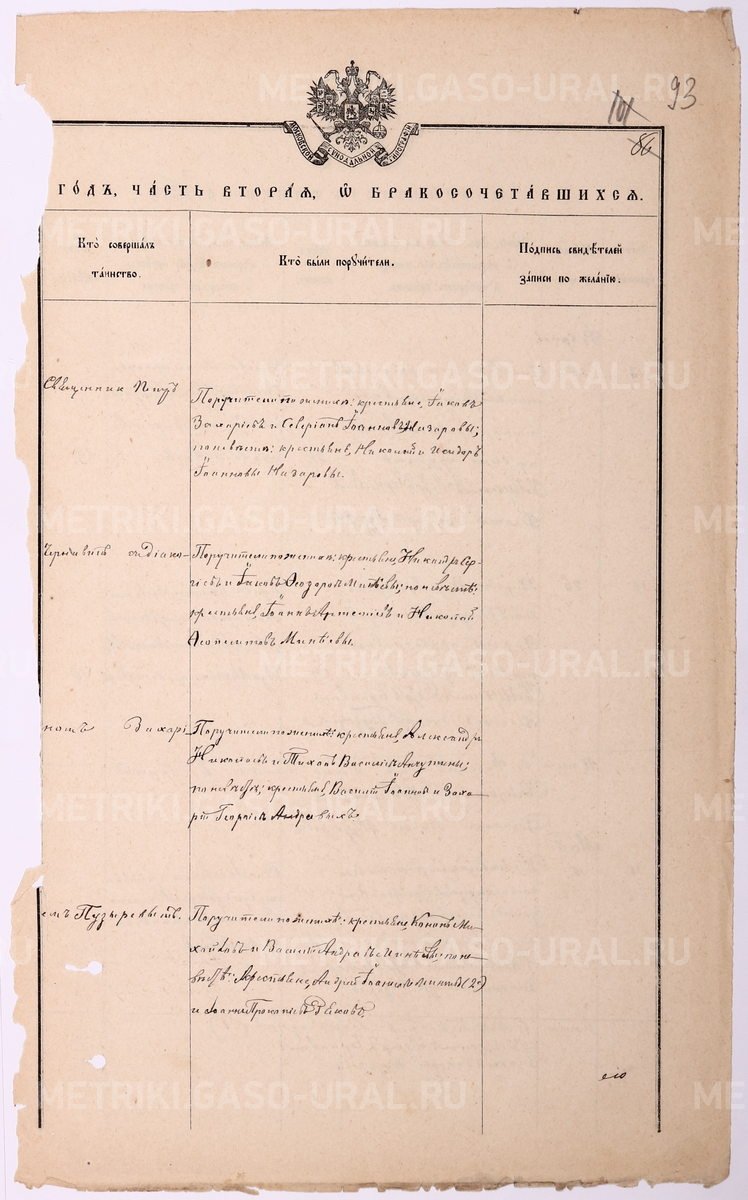 93
101
86
МОСКОВСКОЙ СѴНОДАЛЬНОЙ ТИПОГРАФІИ
ГОДЪ, ЧАСТЬ ВТОРАѦ, Ѡ БРАКОСОЧЕТАВШИХСѦ.
Кто совершалъ таинство.
Кто были поручители.
Подпись свидѣтелей записи по желанію.
Священник Петръ
Поручители по женихѣ: крестьяне, Іаковъ
Захаріевъ и Северіанъ Іоанновъ Назаровы;
по невѣстѣ: крестьяне, Николай и Исидоръ
Іоанновы Назаровы.
съ діако-
Поручители по женихѣ: крестьяне, Никандръ Сер-
гіевъ и Іаковъ Ѳеодоровъ Минѣевы; по невѣстѣ:
крестьяне, Іоаннъ Артеміевъ и Николай
Минѣевы.
номъ Захарі-
Поручители по женихѣ: крестьяне, Александръ
Николаевъ и Тихонъ Василіевъ
по невѣстѣ: крестьяне, Василій Іоанновъ и Заха-
рій Георгіевъ
емъ Пузыревымъ.
Поручители по женихѣ: крестьяне, Кононъ Ми-
хайловъ и Василій Андреевъ Минѣевы; по не-
вѣстѣ: крестьяне, Андрей Іоанновъ Минѣевъ (2й)
и Іоаннъ Прокопіевъ
METRIKI.GASO-URAL.RU